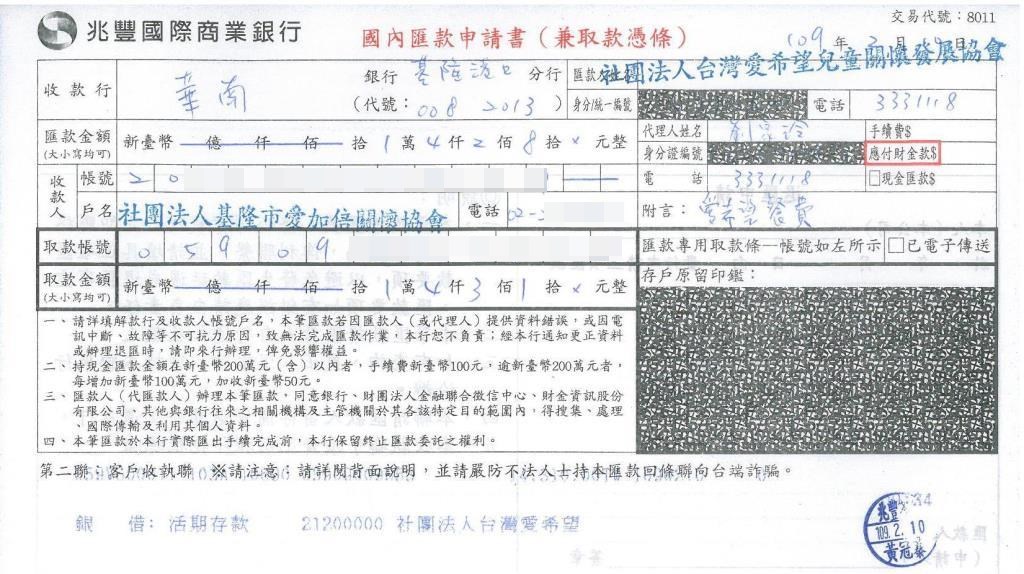 交易代號：8011
兆豐國際商業銀行
國內匯款申請書（兼取款憑條）
109 年 2 月 10 日
收款行 華南 銀行 基隆港口 分行
（代號：008 2013）
匯款人姓名 社團法人台灣愛希望兒童關懷發展協會
身分/統一編號 電話 3331118
匯款金額 新臺幣 億 仟 佰 拾 1 萬 4 仟 2 佰 8 拾 × 元整
(大小寫均可)
代理人姓名 手續費$
身分證編號 應付財金款$
電話 3331118 □現金匯款$
收款人 帳號 2 0
戶名 社團法人基隆市愛加倍關懷協會 電話 02-
附言：愛希望餐費
取款帳號 0 5 9 0 9
匯款專用取款條—帳號如左所示 □已電子傳送
取款金額 新臺幣 億 仟 佰 拾 1 萬 4 仟 3 佰 1 拾 × 元整
(大小寫均可)
存戶原留印鑑：
一、請詳填解款行及收款人帳號戶名，本筆匯款若因匯款人（或代理人）提供資料錯誤，或因電
訊中斷、故障等不可抗力原因，致無法完成匯款作業，本行恕不負責；經本行通知更正資料
或辦理退匯時，請即來行辦理，俾免影響權益。
二、持現金匯款金額在新臺幣200萬元（含）以內者，手續費新臺幣100元，逾新臺幣200萬元者，
每增加新臺幣100萬元，加收新臺幣50元。
三、匯款人（代匯款人）辦理本筆匯款，同意銀行、財團法人金融聯合徵信中心、財金資訊股份
有限公司、其他與銀行往來之相關機構及主管機關於其各該特定目的範圍內，得搜集、處理
、國際傳輸及利用其個人資料。
四、本筆匯款於本行實際匯出手續完成前，本行保留終止匯款委託之權利。
第二聯：客戶收執聯 ※請注意：請詳閱背面說明，並請嚴防不法人士持本匯款回條聯向台端詐騙。
銀 借：活期存款 21200000 社團法人台灣愛希望
兆豐
109. 2. 10
黃冠蓁